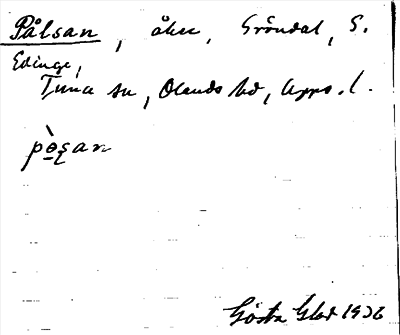 Pålsan, åker, Gröndal, S.
Edinge,
Tuna sn, Olands hd, Upps. l.
pò̱s̨an
Gösta Glad 1936